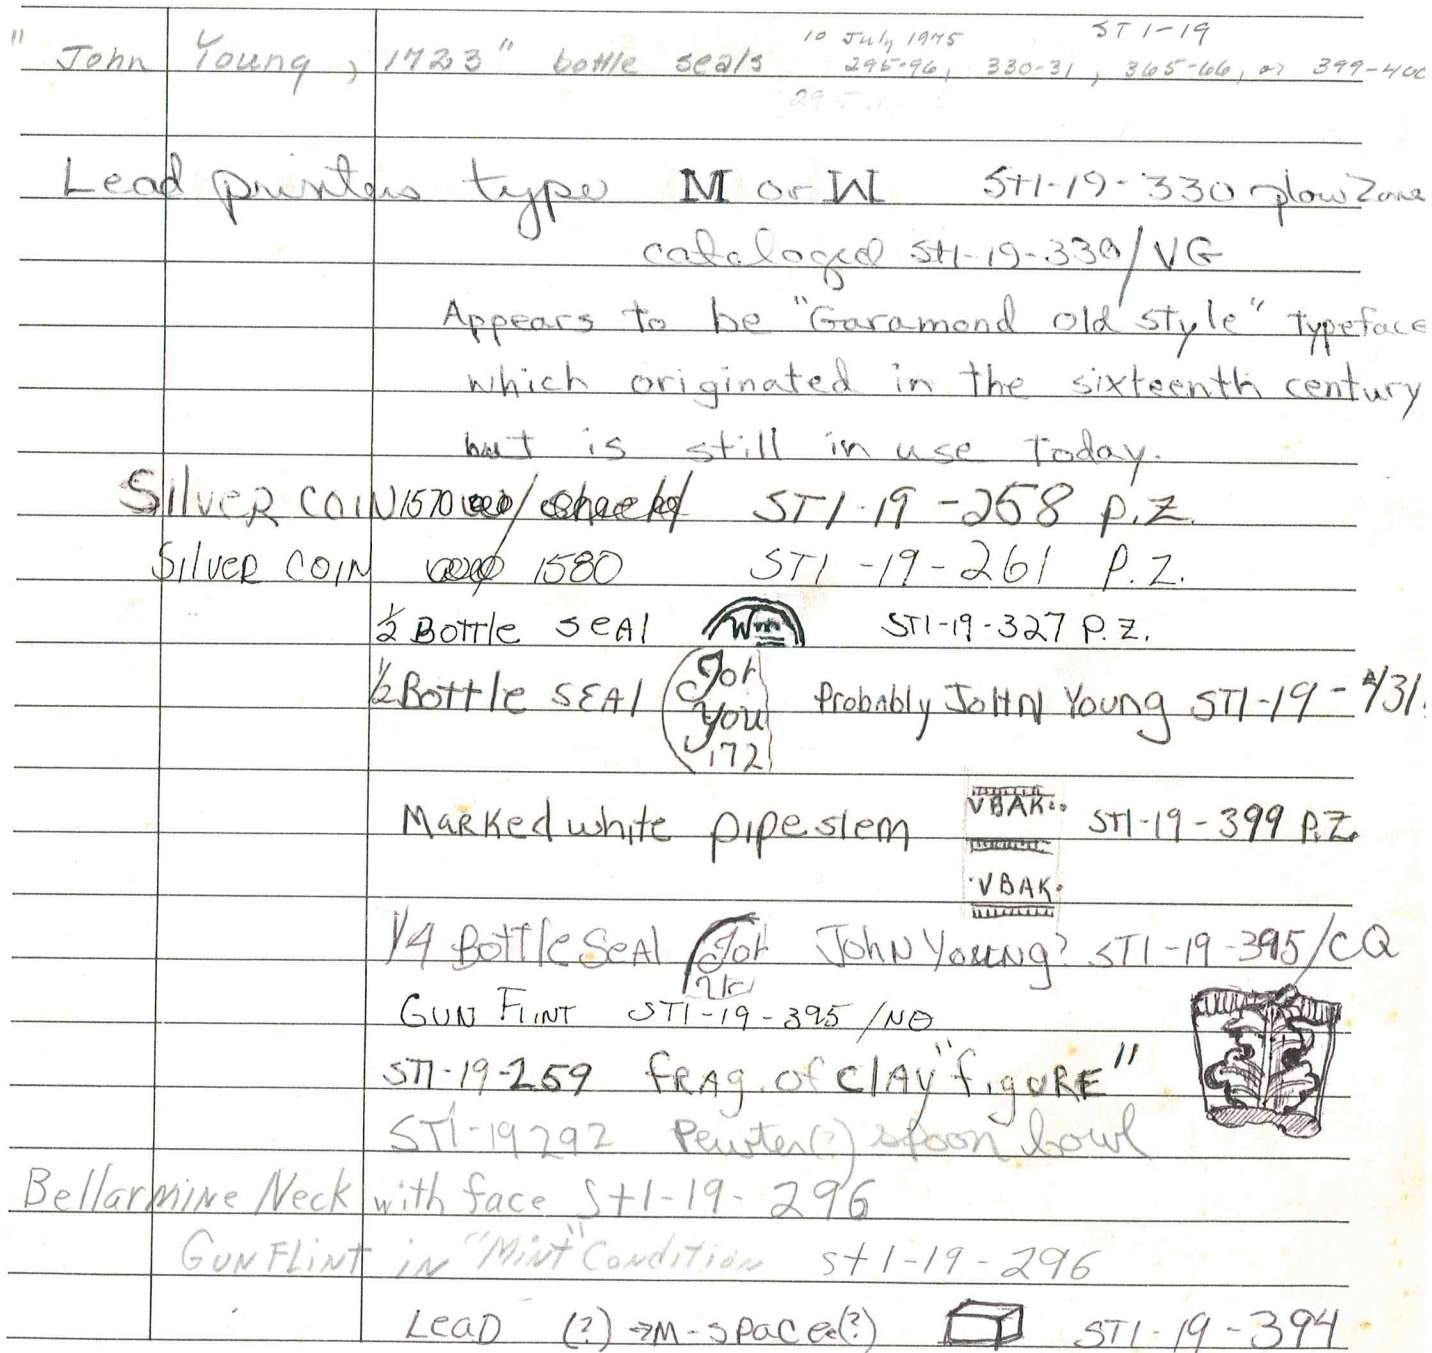 10 July 1975 ST1-19
"John Young, 1723" bottle seals 295-96, 330-31, 365-66, or 399-400
Lead printers type M or W St1-19-330 plowzone
cataloged St1-19-330/VG
Appears to be "Garamond old style" typeface
which originated in the sixteenth century
but is still in use today.
Silver coin 1570 ST1-19-258 P.Z.
Silver coin 1580 ST1-19-261 P.Z.
½ Bottle seal W ST1-19-327 P.Z.
½ Bottle seal Joh Probably John Young ST1-19-
You
172
Marked white pipe stem VBAK ST1-19-399 P.Z.
VBAK
1/4 Bottle Seal Joh John Young? ST1-19-395/CQ
Gun Flint ST1-19-395/NO
ST1-19-259 frag. of clay "figure"
ST1-19 292 Pewter(?) spoon bowl
Bellarmine Neck with face St1-19-296
Gun Flint in "Mint" Condition St1-19-296
Lead (?) → M-space(?) ST1-19-394